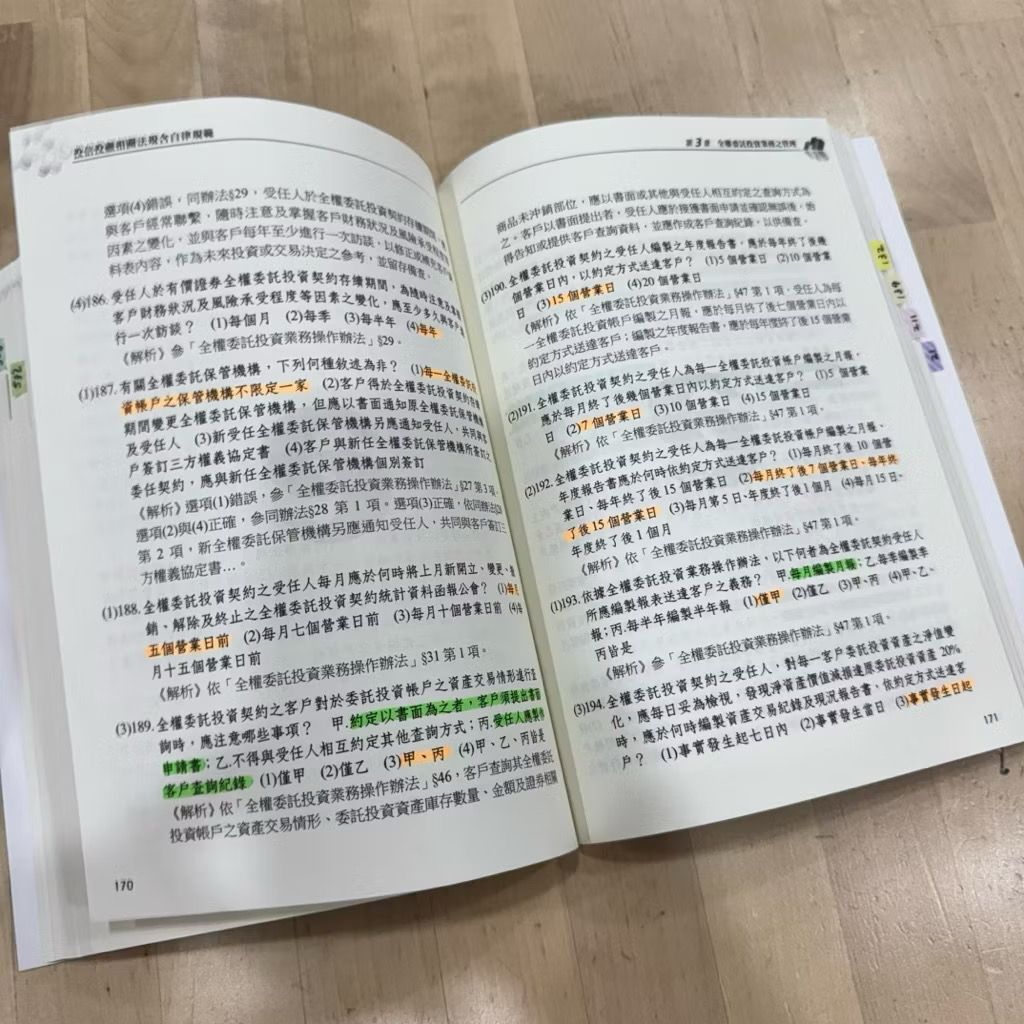 投信投顧相關法規含自律規範
選項(4)錯誤，同辦法§29，受任人於全權委託投資契約存續期間，應
與客戶經常聯繫，隨時注意及掌握客戶財務狀況及風險承受程度等
因素之變化，並與客戶每年至少進行一次訪談，以修正或補充客戶資
料表內容，作為未來投資或交易決定之參考，並留存備查。
(4)186. 受任人於有價證券全權委託投資契約存續期間，為隨時注意及掌握
客戶財務狀況及風險承受程度等因素之變化，應至少多久與客戶進
行一次訪談？ (1)每個月 (2)每季 (3)每半年 (4)每年
《解析》參「全權委託投資業務操作辦法」§29。
(1)187. 有關全權委託保管機構，下列何種敘述為非？ (1)每一全權委託投
資帳戶之保管機構不限定一家 (2)客戶得於全權委託投資契約存續
期間變更全權委託保管機構，但應以書面通知原全權委託保管機構
及受任人 (3)新受任全權委託保管機構另應通知受任人，共同與客
戶簽訂三方權義協定書 (4)客戶與新任全權委託保管機構所簽訂之
委任契約，應與新任全權委託保管機構個別簽訂
《解析》選項(1)錯誤，參「全權委託投資業務操作辦法」§27第3項。
選項(2)與(4)正確，參同辦法§28 第 1 項。選項(3)正確，依同辦法§28
第 2 項，新全權委託保管機構另應通知受任人，共同與客戶簽訂三
方權義協定書…。
(1)188. 全權委託投資契約之受任人每月應於何時將上月新開立、變更、撤
銷、解除及終止之全權委託投資契約統計資料函報公會？ (1)每月
五個營業日前 (2)每月七個營業日前 (3)每月十個營業日前 (4)每
月十五個營業日前
《解析》依「全權委託投資業務操作辦法」§31 第 1 項。
(3)189. 全權委託投資契約之客戶對於委託投資帳戶之資產交易情形進行查
詢時，應注意哪些事項？ 甲.約定以書面為之者，客戶須提出書面
申請書；乙.不得與受任人相互約定其他查詢方式；丙.受任人應製作
客戶查詢紀錄 (1)僅甲 (2)僅乙 (3)甲、丙 (4)甲、乙、丙皆是
《解析》依「全權委託投資業務操作辦法」§46，客戶查詢其全權委託
投資帳戶之資產交易情形、委託投資資產庫存數量、金額及證券相關
170
第 3 章 全權委託投資業務之管理
商品未沖銷部位，應以書面或其他與受任人相互約定之查詢方式為
之。客戶以書面提出者，受任人應於接獲書面申請並確認無誤後，始
得告知或提供客戶查詢資料，並應作成客戶查詢紀錄，以供備查。
(3)190. 全權委託投資契約之受任人編製之年度報告書，應於每年終了後幾
個營業日內，以約定方式送達客戶？ (1)5 個營業日 (2)10 個營業
日 (3)15 個營業日 (4)20 個營業日
《解析》依「全權委託投資業務操作辦法」§47 第 1 項，受任人為每
一全權委託投資帳戶編製之月報，應於每月終了後七個營業日內以
約定方式送達客戶；編製之年度報告書，應於每年度終了後 15 個營業
日內以約定方式送達客戶。
(2)191. 全權委託投資契約之受任人為每一全權委託投資帳戶編製之月報，
應於每月終了後幾個營業日內以約定方式送達客戶？ (1)5 個營業
日 (2)7 個營業日 (3)10 個營業日 (4)15 個營業日
《解析》依「全權委託投資業務操作辦法」§47 第 1 項。
(2)192. 全權委託投資契約之受任人為每一全權委託投資帳戶編製之月報、
年度報告書應於何時依約定方式送達客戶？ (1)每月終了後 10 個營
業日、每年終了後 15 個營業日 (2)每月終了後 7 個營業日、每年終
了後 15 個營業日 (3)每月第 5 日、年度終了後 1 個月 (4)每月 15 日、
年度終了後 1 個月
《解析》依「全權委託投資業務操作辦法」§47 第 1 項。
(1)193. 依據全權委託投資業務操作辦法，以下何者為全權委託契約受任人
所應編製報表送達客戶之義務？ 甲.每月編製月報；乙.每季編製季
報；丙.每半年編製半年報 (1)僅甲 (2)僅乙 (3)甲、丙 (4)甲、乙、
丙皆是
《解析》參「全權委託投資業務操作辦法」§47 第 1 項。
(3)194. 全權委託投資契約之受任人，對每一客戶委託投資資產之淨值變
化，應每日妥為檢視，發現淨資產價值減損達原委託投資資產 20%
時，應於何時編製資產交易紀錄及現況報告書，依約定方式送達客
戶？ (1)事實發生起七日內 (2)事實發生當日 (3)事實發生日起
171